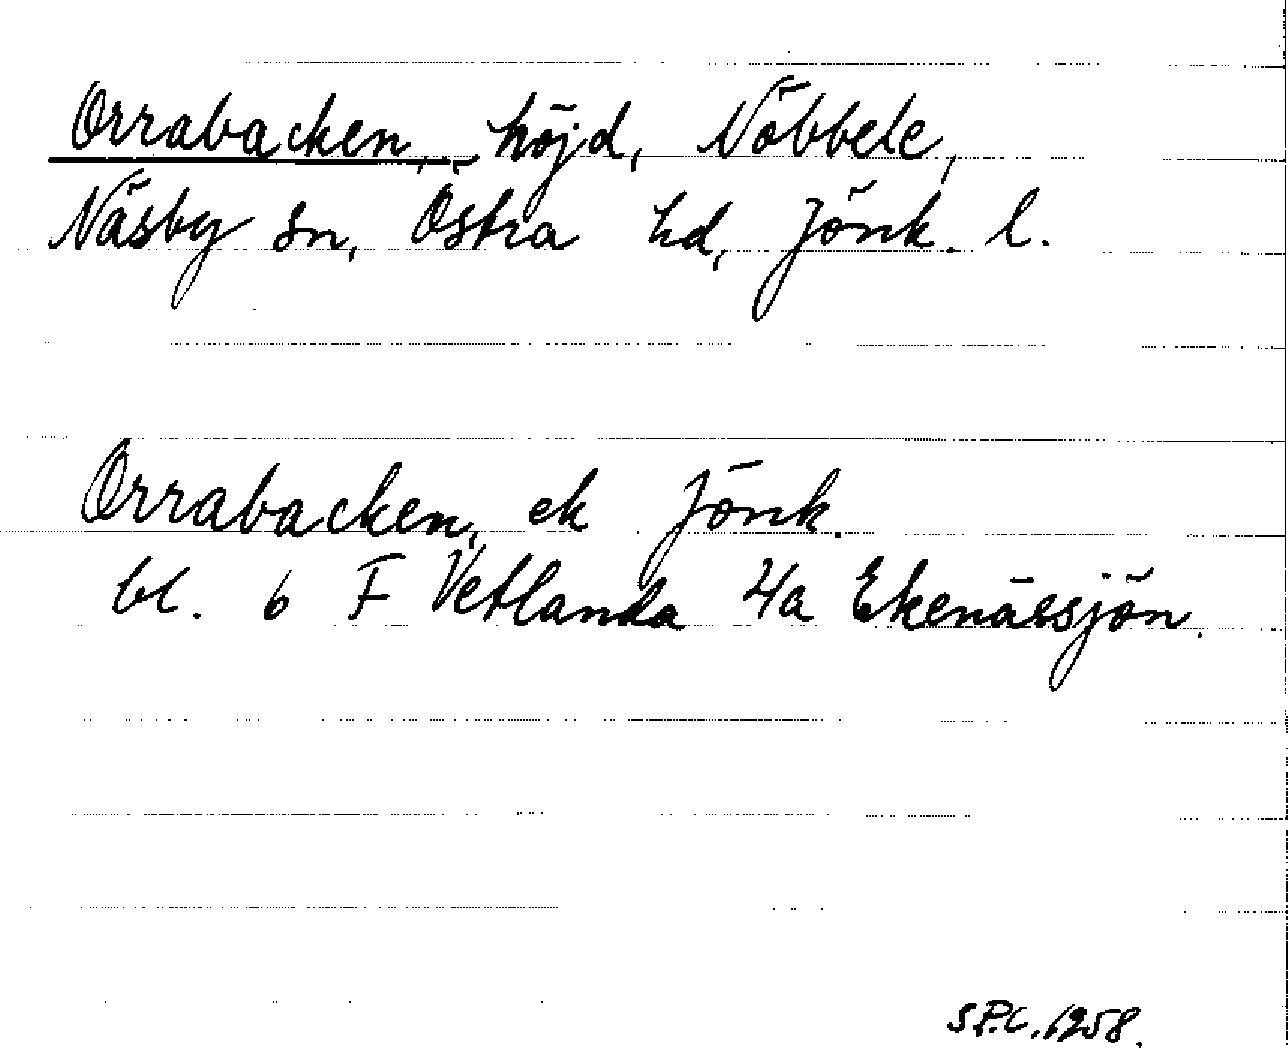 Orrabacken, höjd, Nöbbele,
Näsby sn, Östra hd, Jönk. l.
Orrabacken, ek Jönk.
bl. 6 F Vetlanda 4a Ekenässjön.
S.P.C. 1958.